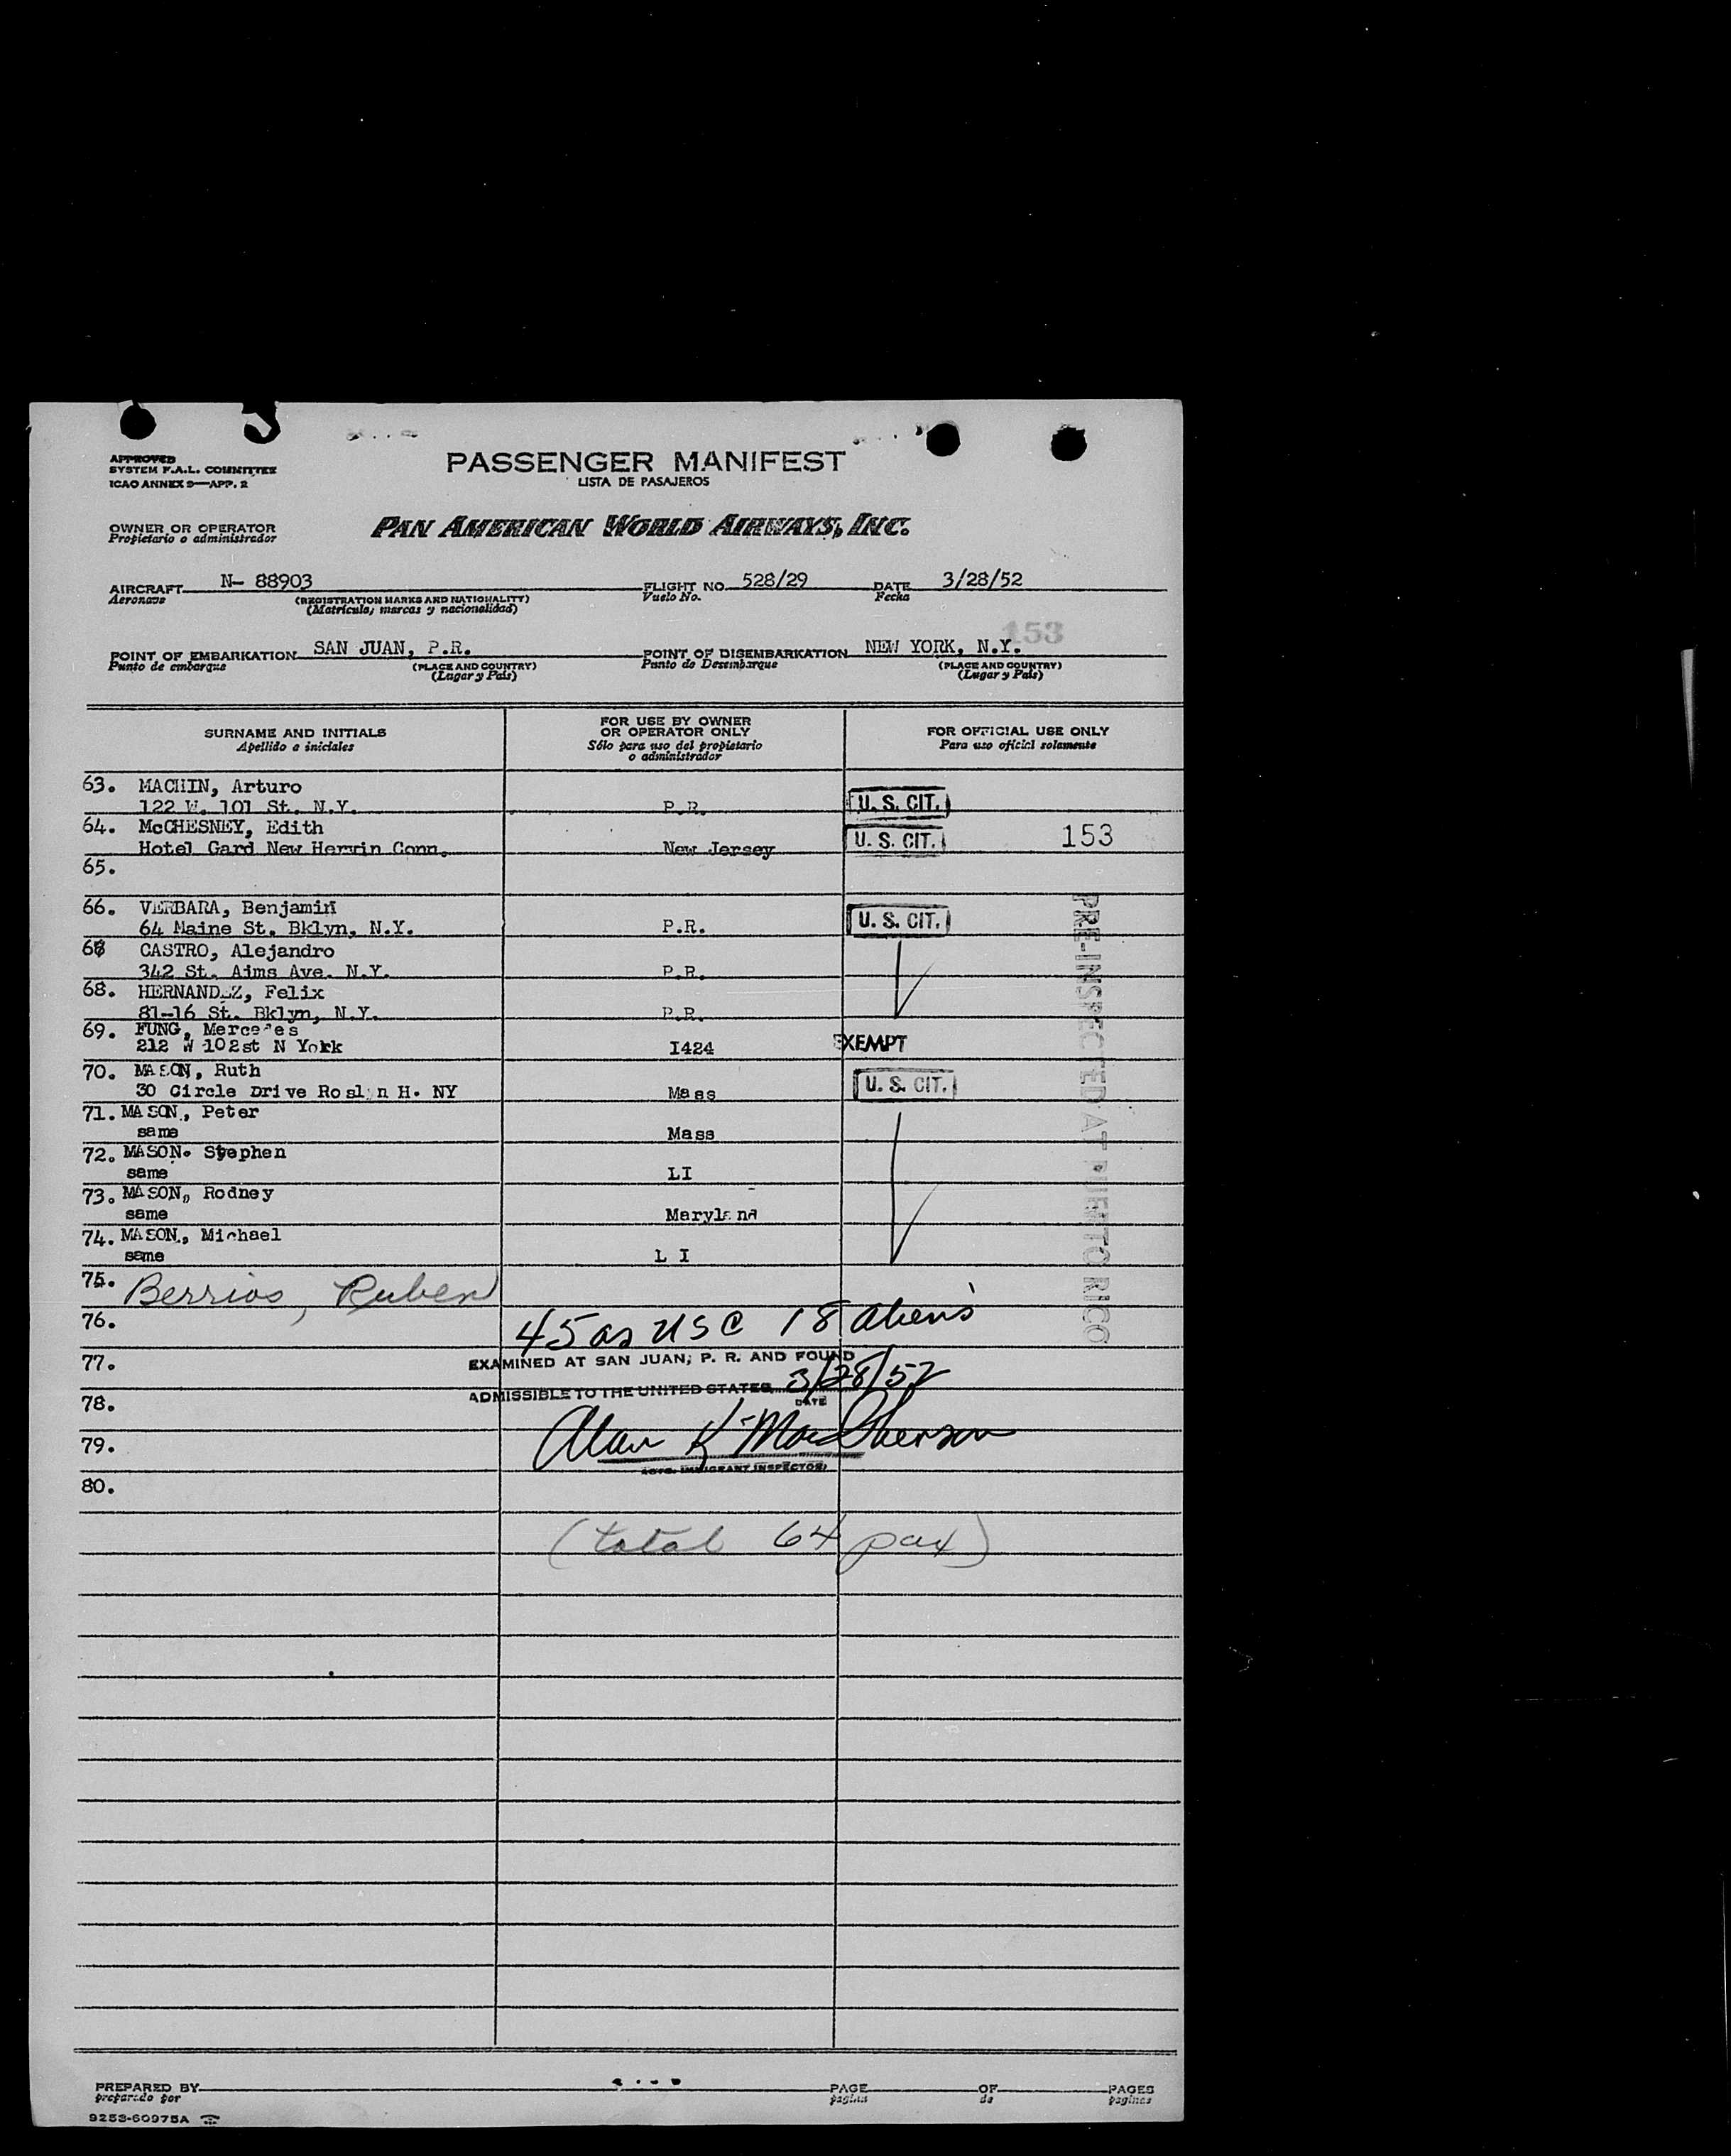 APPROVED
SYSTEM F.A.L. COMMITTEE
ICAO ANNEX 9—APP. 2
PASSENGER MANIFEST
LISTA DE PASAJEROS
OWNER OR OPERATOR
Propietario o administrador
PAN AMERICAN WORLD AIRWAYS, INC.
AIRCRAFT N- 88903 FLIGHT NO. 528/29 DATE 3/28/52
Aeronave (REGISTRATION MARKS AND NATIONALITY) Vuelo No. Fecha
(Matricula, marcas y nacionalidad)
153
POINT OF EMBARKATION SAN JUAN, P.R. POINT OF DISEMBARKATION NEW YORK, N.Y.
Punto de embarque (PLACE AND COUNTRY) Punto de Desembarque (PLACE AND COUNTRY)
(Lugar y País) (Lugar y País)
SURNAME AND INITIALS FOR USE BY OWNER OR OPERATOR ONLY FOR OFFICIAL USE ONLY
Apellido e iniciales Sólo para uso del propietario o administrador Para uso oficial solamente
63. MACHIN, Arturo
122 W. 101 St. N.Y. P.R. U. S. CIT.
64. McCHESNEY, Edith 153
Hotel Gard New Hervin Conn. New Jersey U. S. CIT.
65.
66. VERBARA, Benjamin
64 Maine St. Bklyn, N.Y. P.R. U. S. CIT.
CASTRO, Alejandro
342 St. Aims Ave. N.Y. P.R.
68. HERNANDEZ, Felix
81-16 St. Bklyn, N.Y. P.R.
69. FUNG, Mercedes
212 W 102st N York I424 EXEMPT
70. MASON, Ruth
30 Circle Drive Roslyn H. NY Mass U. S. CIT.
71. MASON, Peter
same Mass
72. MASON. Stephen
same LI
73. MASON, Rodney
same Maryland
74. MASON, Michael
same L I
75. Berrios, Ruben
76. 45 as USC 18 aliens
77. EXAMINED AT SAN JUAN, P. R. AND FOUND
ADMISSIBLE TO THE UNITED STATES 3/28/52
DATE
78.
Alan K MacPherson
79.
IMMIGRANT INSPECTOR
80.
(total 64 pax)
PRE-INSPECTED AT PUERTO RICO
PREPARED BY PAGE OF PAGES
preparado por pagina de paginas
9253-60975A